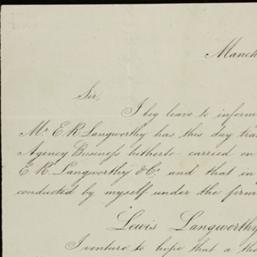 Manch
Sir,
I beg leave to inform
Mr. E R Langworthy has this day tra
Agency Business hitherto carried on
E R. Langworthy & Co. and that in
conducted by myself under the firm
Lewis Langworthy
I venture to hope that a tho